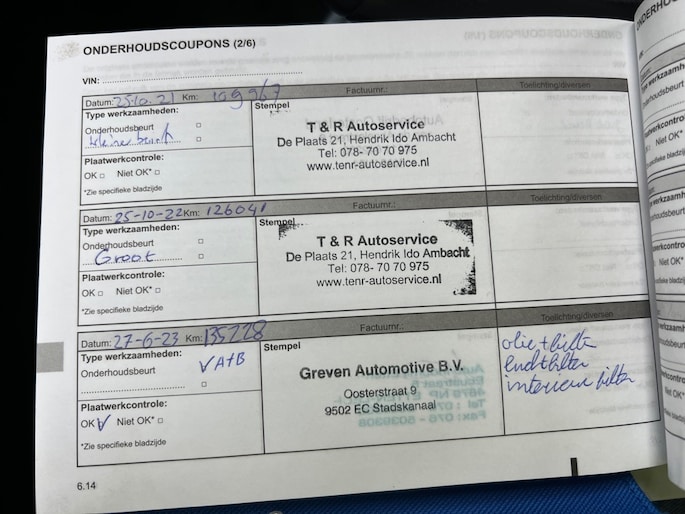 ONDERHOUDSCOUPONS (2/6)
VIN:
Datum: 25.10.21 Km: 109967 Factuurnr.: Toelichting/diversen
Type werkzaamheden:
Stempel
Onderhoudsbeurt
kleine beurt
Plaatwerkcontrole:
OK □ Niet OK* □
*Zie specifieke bladzijde
T & R Autoservice
De Plaats 21, Hendrik Ido Ambacht
Tel: 078- 70 70 975
www.tenr-autoservice.nl
Datum: 25-10-22 Km: 126041 Factuurnr.: Toelichting/diversen
Type werkzaamheden:
Stempel
Onderhoudsbeurt
Groot
Plaatwerkcontrole:
OK □ Niet OK* □
*Zie specifieke bladzijde
T & R Autoservice
De Plaats 21, Hendrik Ido Ambacht
Tel: 078- 70 70 975
www.tenr-autoservice.nl
Datum: 27-6-23 Km: 135228 Factuurnr.: Toelichting/diversen
Type werkzaamheden:
Stempel
Onderhoudsbeurt √ A+B
Plaatwerkcontrole:
OK √ Niet OK* □
*Zie specifieke bladzijde
Greven Automotive B.V.
Oosterstraat 9
9502 EC Stadskanaal
olie+filter
luchtfilter
interieur filter
6.14